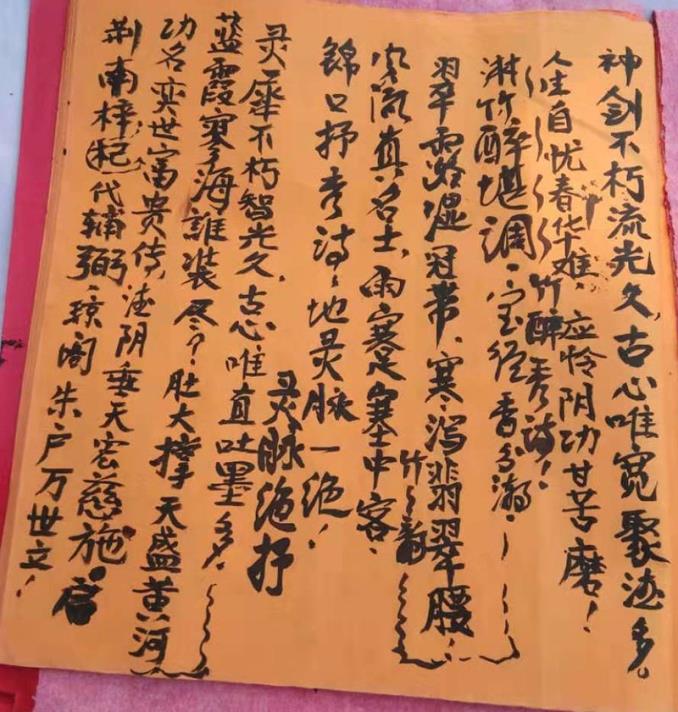 神剑不朽流光久,古心唯宽聚德多。
人生自忧春华难,应怜阴功甘苦磨!
竹醉秀诗!
淋竹醉堪调,宝径香分潮
翠露湿冠带,寒泻翡翠腰
竹韵
风流真名士,雨寒是塞中客
锦口抒秀诗,地灵脉一绝!
灵脉绝抒
灵犀不朽智光久,古心唯直吐墨多
蓝霞寒海谁装尽?肚大撑天盛黄河
功名奕世富贵传,德阴垂天宏慈施
荆南梓杞代辅弼,琼阁朱户万世立!